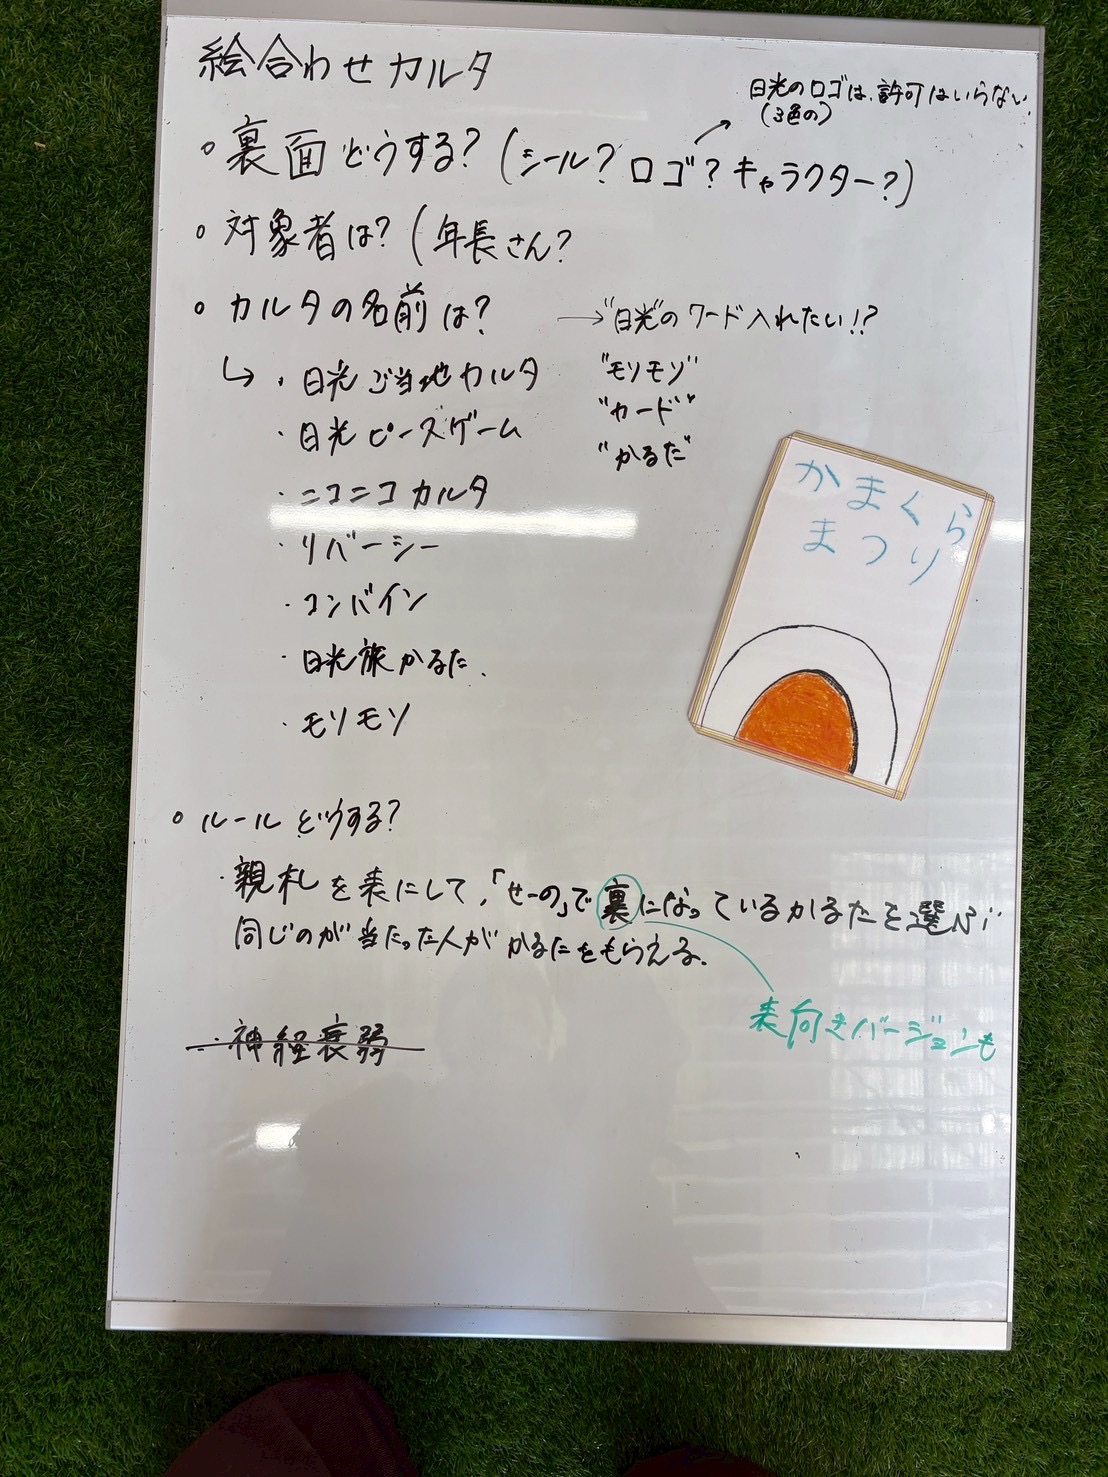 絵合わせカルタ
日光のロゴは、許可はいらない
(3色の)
○裏面どうする?(シール?ロゴ?キャラクター?)
○対象者は?(年長さん?
○カルタの名前は?
→"日光"のワード入れたい!!?
"モリモリ"
"カード"
"かるた"
↳・日光ご当地カルタ
・日光ピースゲーム
・ニコニコカルタ
・リバーシー
・コンバイン
・日光旅かるた.
・モリモリ
かまくら
まつり
○ルールどうする?
・親札を表にして、「せーの」で裏になっているかるたを選んで
同じのが当たった人がかるたをもらえる.
表向きバージョンも
・神経衰弱